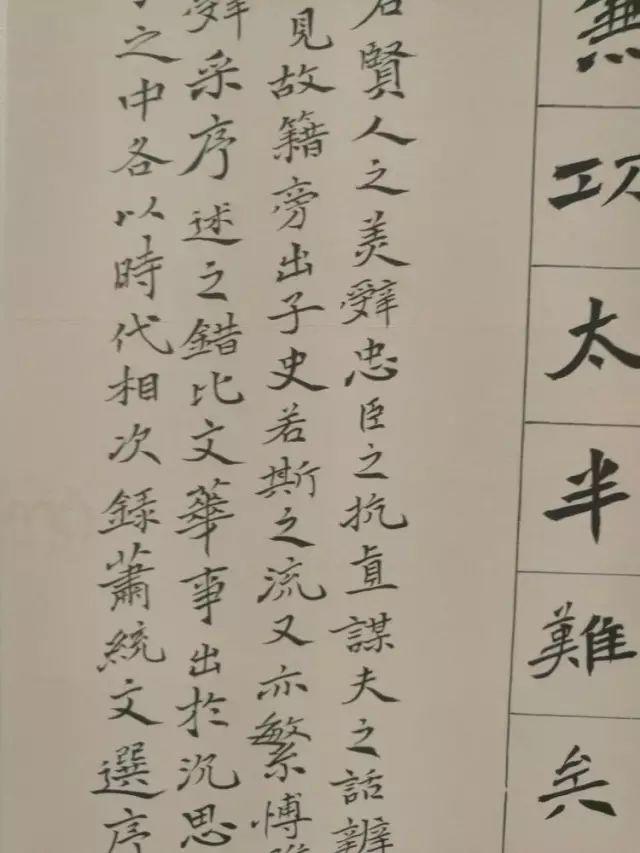 無功太半難矣
賢人之美辭忠臣之抗直謀夫之話辨
見故籍旁出子史若斯之流又亦繁博
辭采序述之錯比文華事出於沉思
之中各以時代相次錄蕭統文選序